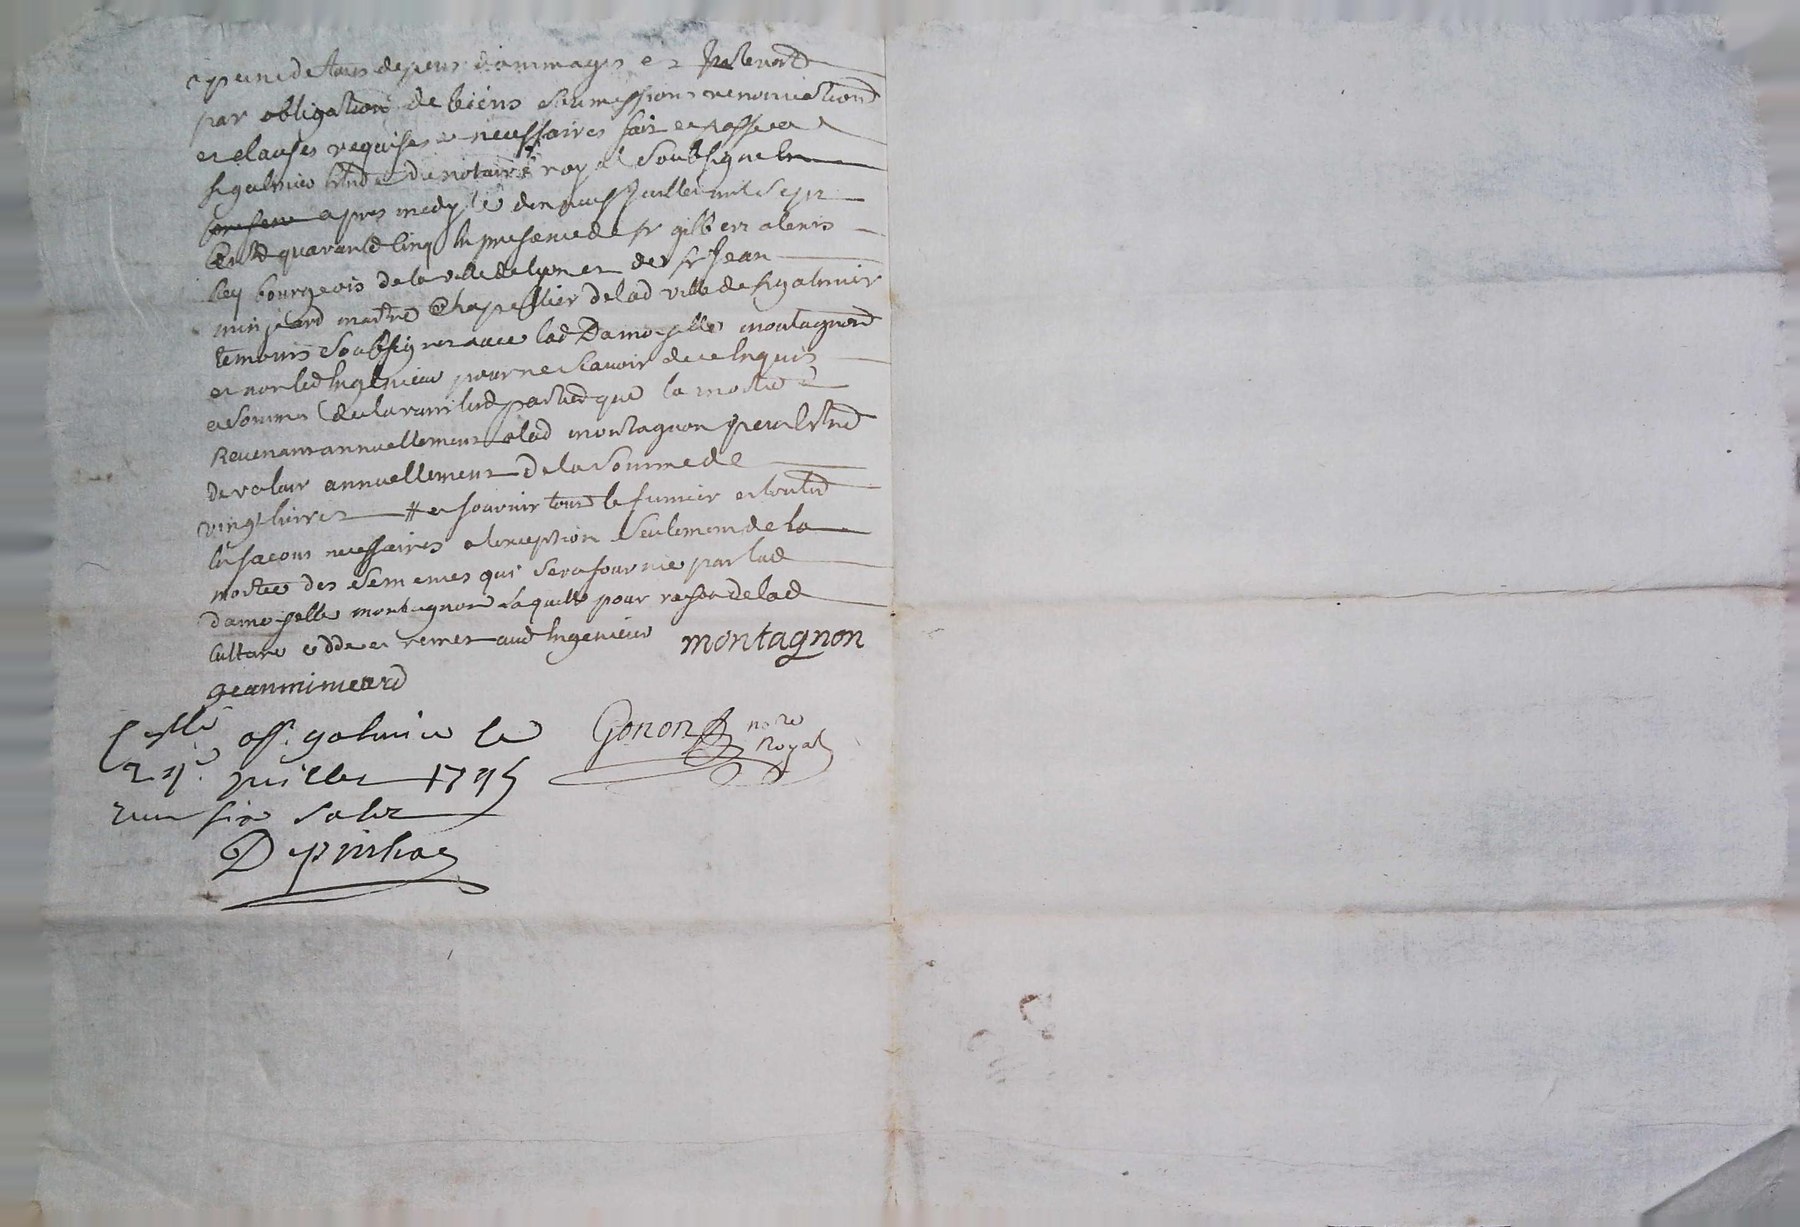 a peine de tous depens dommages et Interests
par obligation de biens soumissions renonciations
et clauses requises et necessaires fait et passé a
St galmier Etude du notaire royal soubsigné
apres midy le dix neuf Juillet mil sept
Cents quarante Cinq En presence de sr gilbert alexis
Rey bourgeois de la ville de lyon et de sr Jean
minjeard maitre Chapellier de lad ville de St galmier
temoins soubsignes avec lad Damoiselle montagnon
et non led Ingenieur pour ne sçavoir de ce Enquis
et sommé declarant lesd parties que la moitié
Revenant annuellement a lad montagnon peut Etre
de valeur annuellement de la somme de
vingt livres # et fournir tout le fumier et toutes
les façons necessaires a l'exception seulement de la
moitié des semences qui sera fournie par lad
damoiselle montagnon laquelle pour raison de lad
culture cedde et remet aud Ingenieur montagnon
geanminieard
Gonon nore Royal
Conllé a St galmier le
29e juillet 1745
Receu six sols